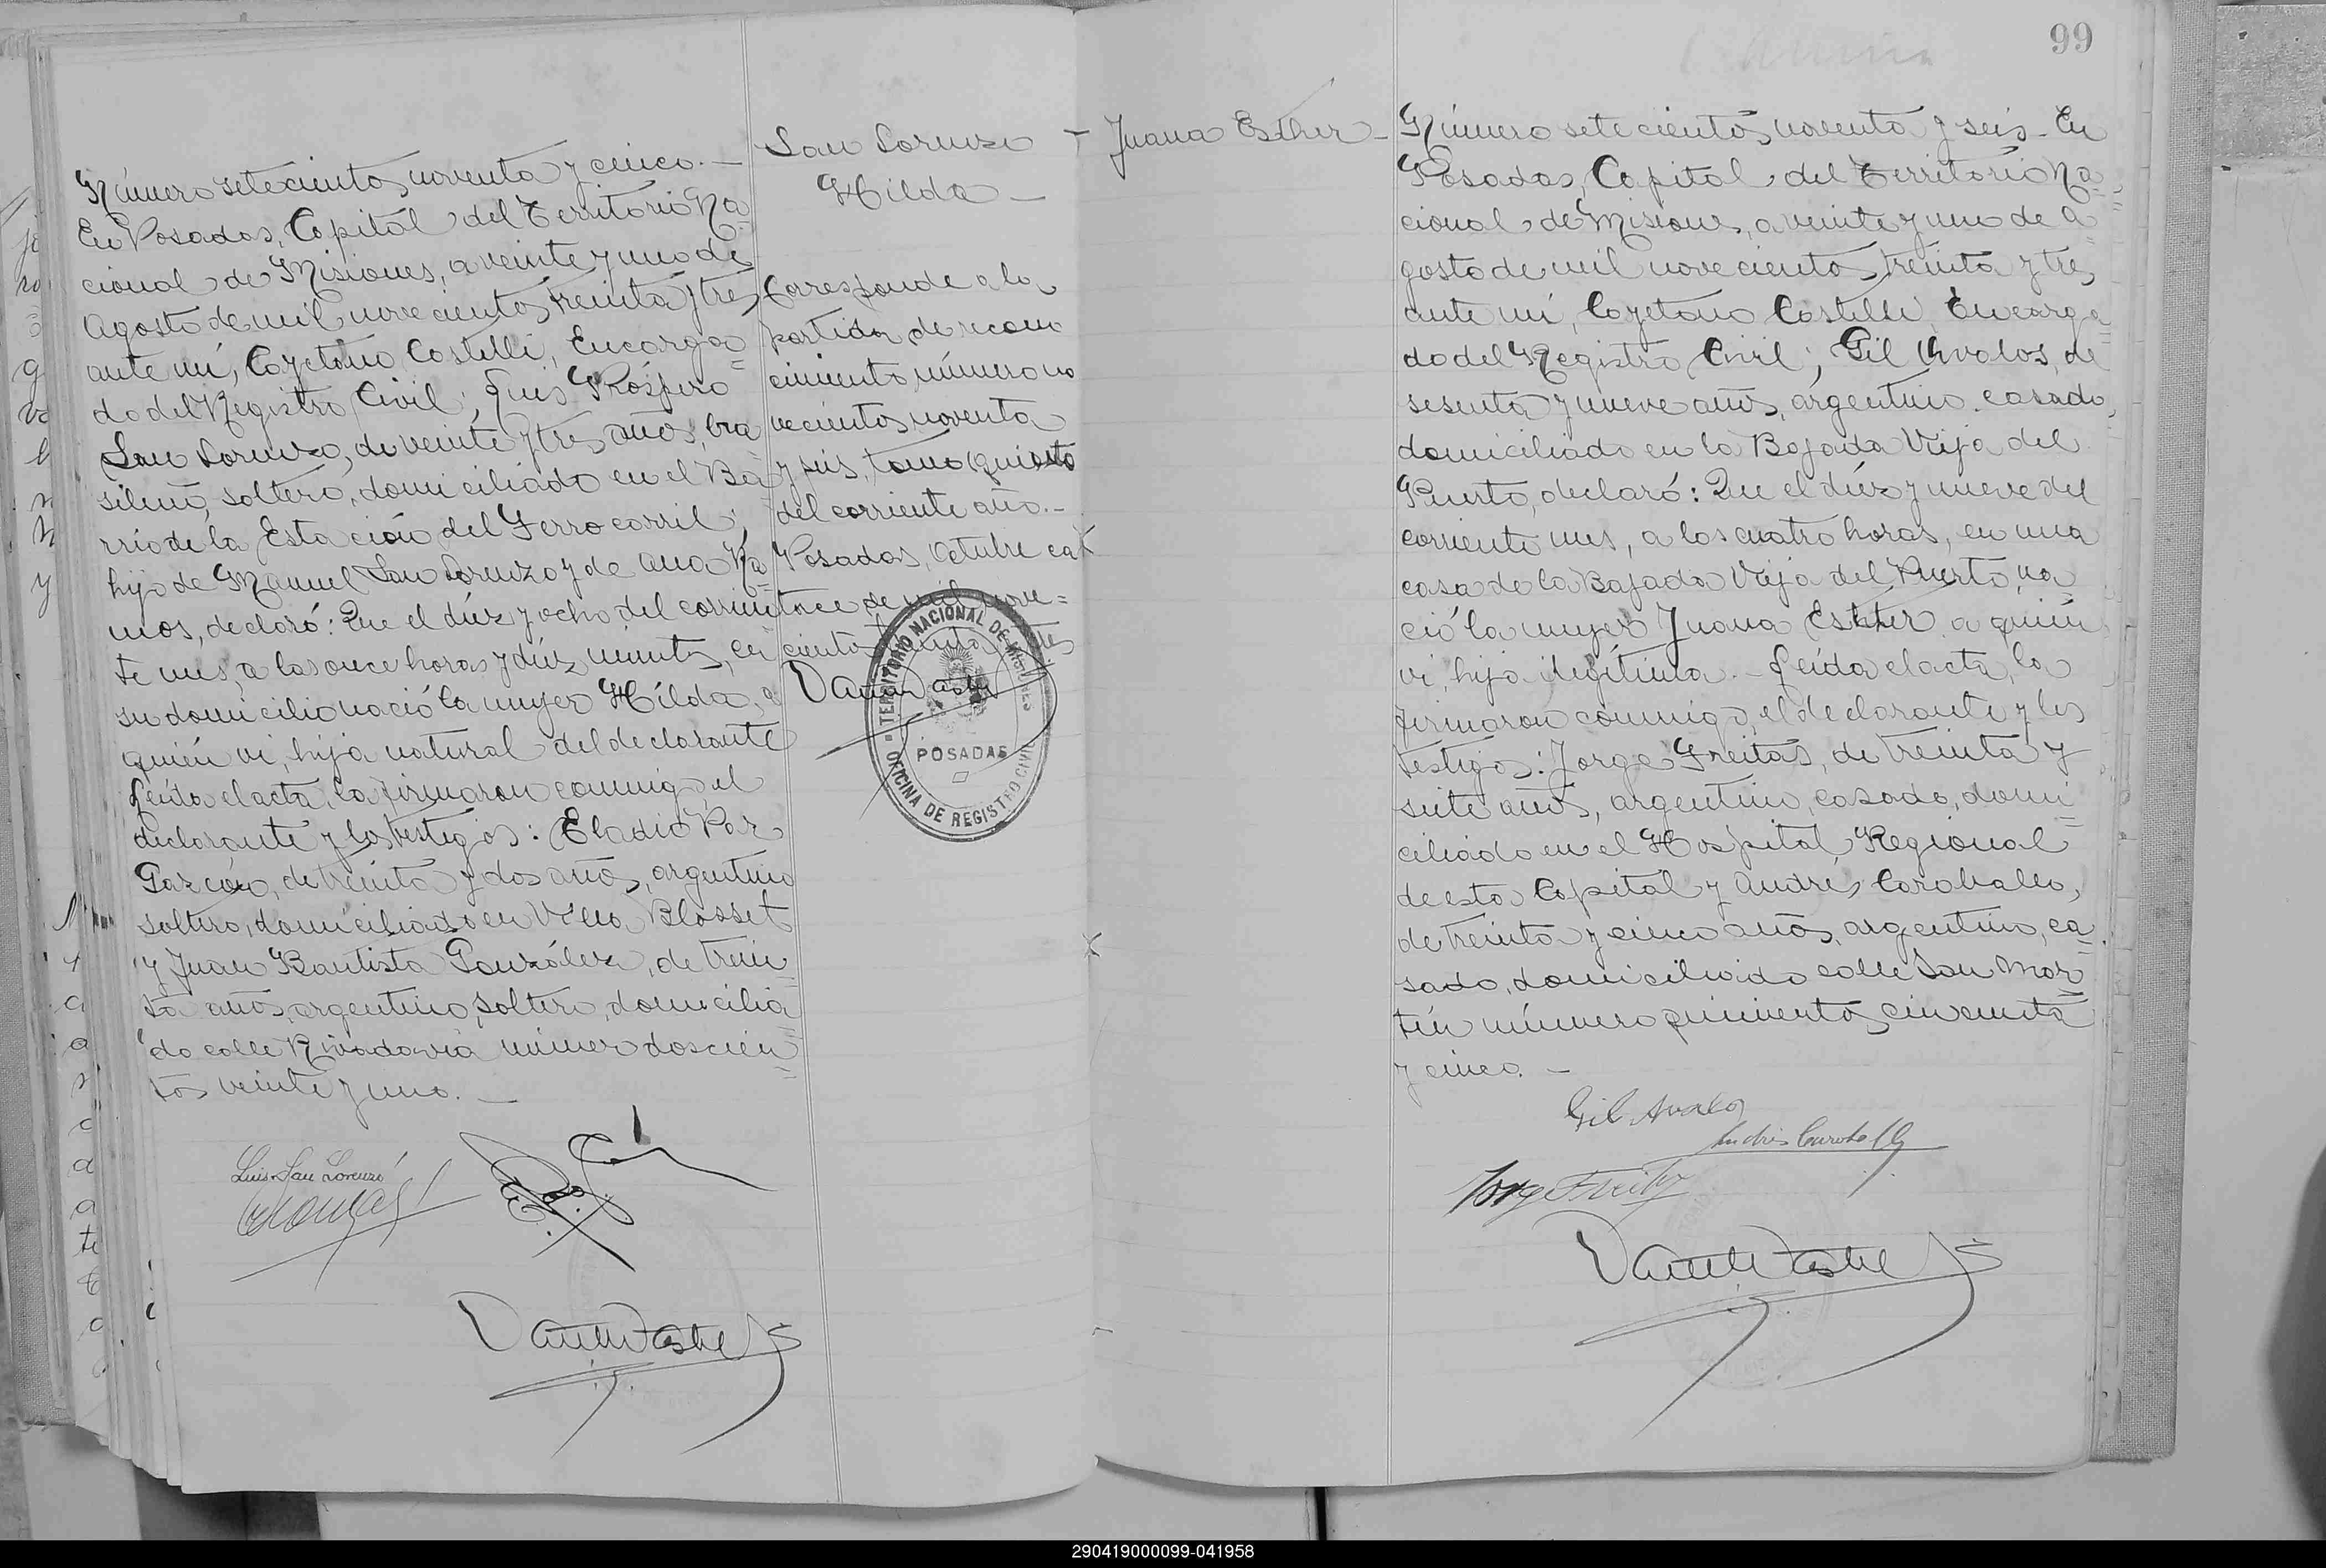 Número setecientos noventa y cinco. —
En Posadas, Capital del Territorio Na=
cional de Misiones, a veinte y uno de
Agosto de mil novecientos treinta y tres
ante mí, Cayetano Castelli, Encarga=
do del Registro Civil; Luis Próspero
San Lorenzo, de veinte y tres años, bra
sileño, soltero, domiciliado en el Ba=
rrio de la Estación del Ferrocarril;
hijo de Manuel San Lorenzo y de Ana Ra=
mos, declaró: Que el diez y ocho del corrien
te mes, a las once horas y diez minutos, en
su domicilio nació la mujer Hilda, a
quién vi, hija natural del declarante
Leída el acta, la firmaron conmigo el
declarante y los testigos: Eladio Paz
Garzón, de treinta y dos años, argentino
soltero, domiciliado en Villa Blosset
y Juan Bautista González, de trein=
ta años, argentino, soltero, domicilia=
do calle Rivadavia número doscien=
tos veinte y uno. —
Luis San Lorenzo
San Lorenzo
Hilda —
Corresponde a la
partida de recono
cimiento número no
vecientos noventa
y seis, tomo quinto
del corriente año. —
Posadas, Octubre ca
torce de mil nove=
cientos treinta y tres
TERRITORIO NACIONAL DE MISIONES
POSADAS
OFICINA DE REGISTRO CIVIL
99
Juana Esther —
Número setecientos noventa y seis. En
Posadas, Capital del Territorio Na=
cional de Misiones, a veinte y uno de A=
gosto de mil novecientos treinta y tres
ante mí, Cayetano Castelli, Encarga=
do del Registro Civil; Gil Avalos, de
sesenta y nueve años, argentino, casado,
domiciliado en la Bajada Vieja del
Puerto, declaró: Que el diez y nueve del
corriente mes, a las cuatro horas, en una
casa de la Bajada Vieja del Puerto, na=
ció la mujer Juana Esther a quién
vi, hija ilegítima. — Leída el acta, la
firmaron conmigo, el declarante y los
testigos: Jorge Freitas, de treinta y
siete años, argentino, casado, domi=
ciliado en el Hospital Regional
de esta Capital y Andrés Caraballo,
de treinta y cinco años, argentino, ca=
sado, domiciliado calle San Mar=
tín número quinientos cincuenta
y cinco. —
Gil Avalos
Andrés Caraballo
Jorge Freitas
290419000099-041958